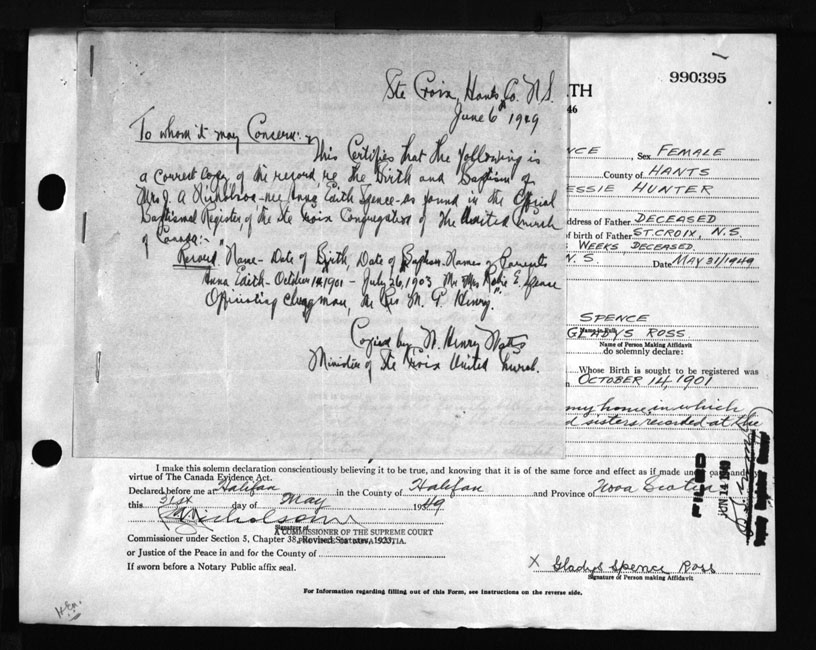 Ste Croix, Hants Co. N.S.
June 6 1949
To whom it may Concern:-
This Certifies that the following is
a correct copy of the record, re the Birth and Baptism of
Mrs. J. A Nicholson - nee Anna Edith Spence - as found in the Official
Baptismal Register of the Ste Croix Congregation of The United Church
of Canada:-
Record. "Name - Date of Birth, Date of Baptism - Names of Parents
Anna Edith - October 14, 1901 - July 26, 1903 Mr & Mrs E. Spence
Officiating clergyman, the Rev. M. G. Henry."
Copied by W. Henry Watts
Minister of Ste Croix United Church.
990395
TH
46
NCE, Sex FEMALE
County of HANTS
ESSIE HUNTER
ddress of Father DECEASED
of birth of Father ST. CROIX, N.S.
WEEKS, DECEASED.
N.S Date MAY 31/1949
SPENCE
Name in Full
GLADYS ROSS
Name of Person Making Affidavit
do solemnly declare:
Whose Birth is sought to be registered was
n OCTOBER 14, 1901
my home, in which
d sisters recorded at the
I make this solemn declaration conscientiously believing it to be true, and knowing that it is of the same force and effect as if made under oath and by
virtue of The Canada Evidence Act.
Declared before me at Halifax in the County of Halifax and Province of Nova Scotia
this 31st day of May 1949
Nicholson
Signature of
A COMMISSIONER OF THE SUPREME COURT
Commissioner under Section 5, Chapter 38, Revised Statutes, 1923,
PROVINCE OF NOVA SCOTIA.
or Justice of the Peace in and for the County of
If sworn before a Notary Public affix seal.
X Gladys Spence Ross
Signature of Person making Affidavit
For Information regarding filling out of this Form, see instructions on the reverse side.
FILED
JUN 14 1949
Deputy Registrar General